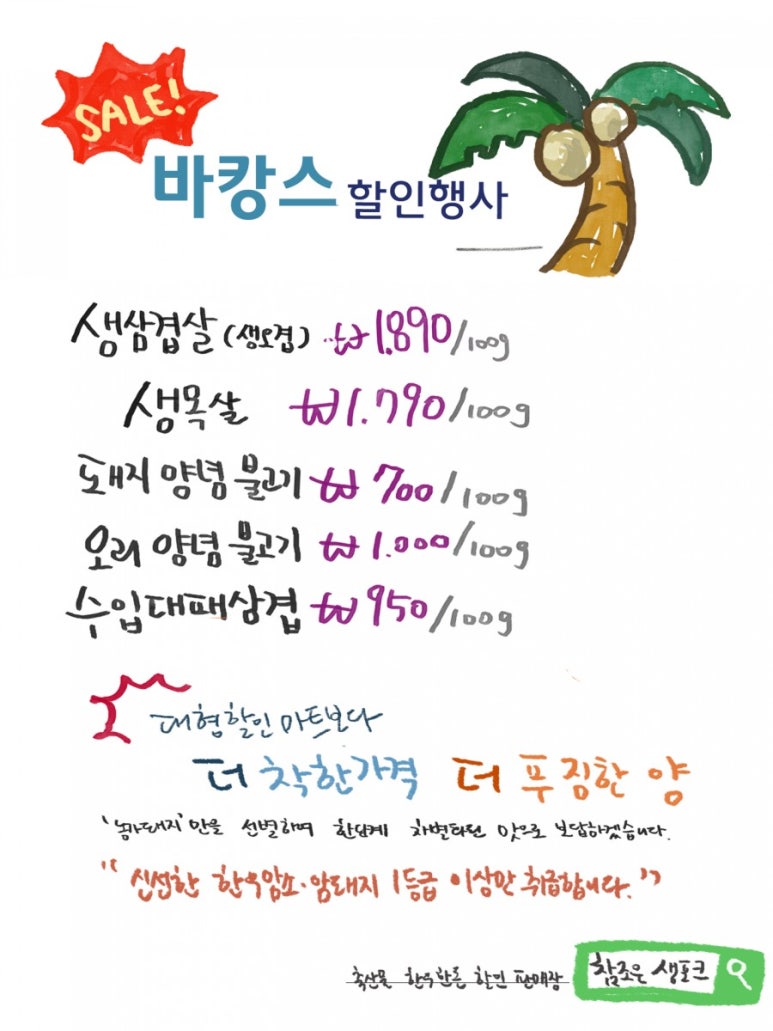 SALE!
바캉스 할인행사
생삼겹살 (생오겹) ₩1.890/100g
생목살 ₩1.790/100g
돼지 양념 불고기 ₩700/100g
오리 양념 불고기 ₩1.000/100g
수입대패삼겹 ₩950/100g
대형할인마트보다
더 착한가격 더 푸짐한 양
만을 선별하며 한단계 차별화된 맛으로 보답하겠습니다.
"신선한 한우암소·암돼지 1등급 이상만 취급합니다."
축산물 한우한돈 할인 판매장 참조은 생포크